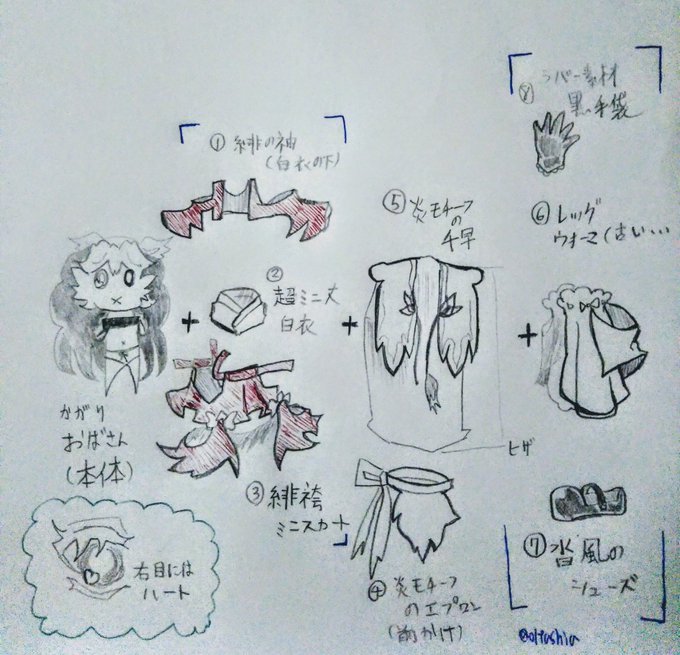 ① 緋の袖
(白衣の下)
+
② 超ミニ丈
白衣
③ 緋袴
ミニスカート
+
⑤ 炎モチーフ
の
千早
ヒザ
④ 炎モチーフ
のエプロン
(前かけ)
+
⑧ ラバー素材
黒い手袋
⑥ レッグ
ウォーマ(古い…
⑦ 沓風の
シューズ
かがり
おばさん
(本体)
右目には
ハート